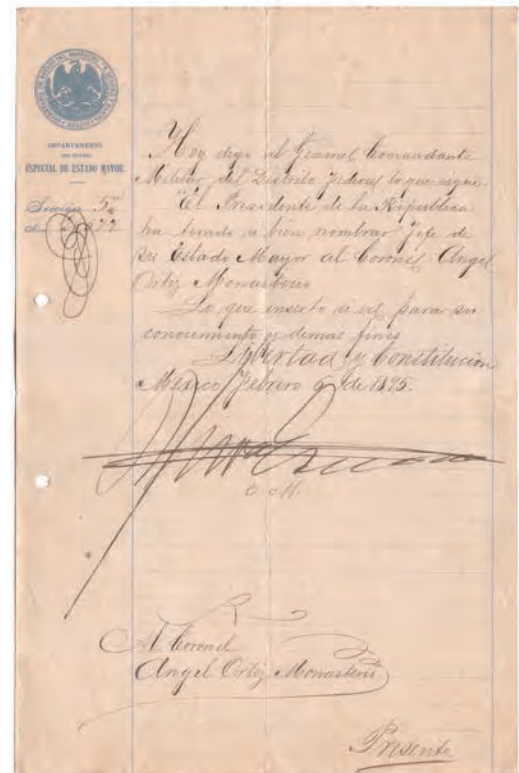 DEPARTAMENTO
ESPECIAL DE ESTADO MAYOR.
Sección 5ª
Hoy digo al General Comandante
Militar del Distrito Federal lo que sigue.
"El Presidente de la República
ha tenido a bien nombrar Jefe de
su Estado Mayor al Coronel Angel
Ortiz Monasterio
Lo que inserto á vd para su
conocimiento y demas fines
Libertad y Constitución
México Febrero 6 de 1895.
O. M.
Al Coronel
Angel Ortiz Monasterio
Presente